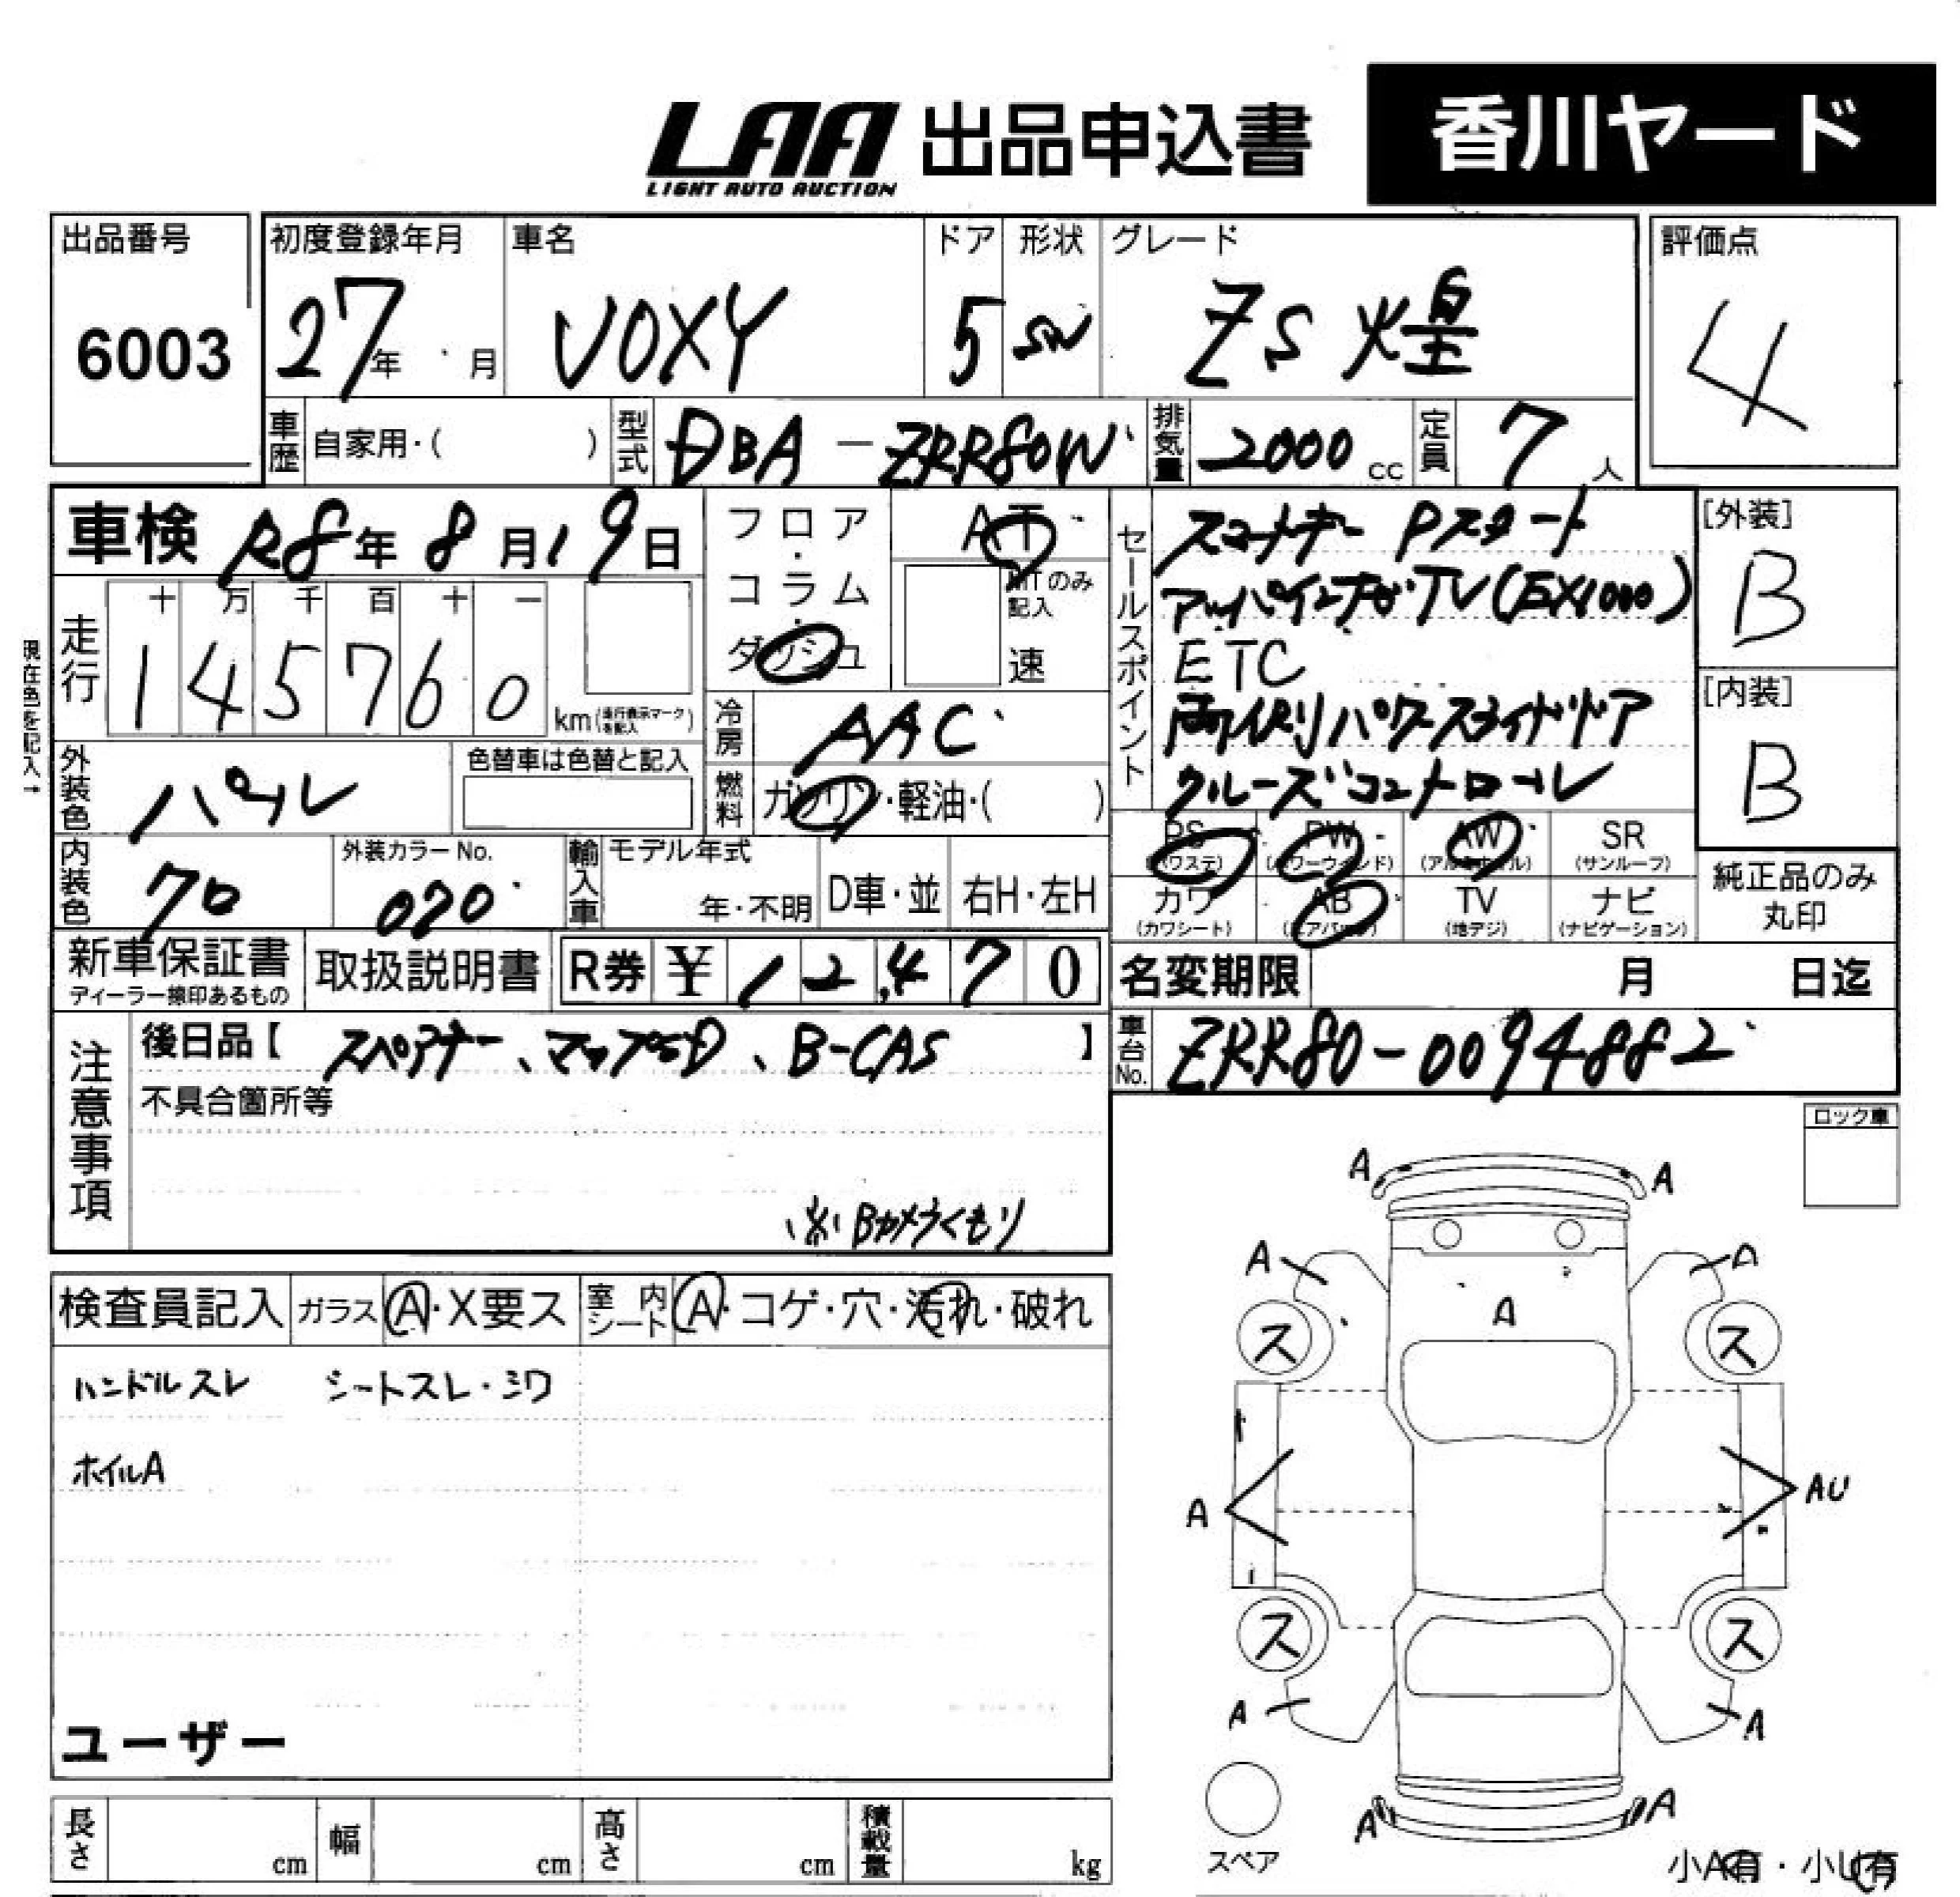 LAA 出品申込書 香川ヤード
LIGHT AUTO AUCTION
出品番号 初度登録年月 車名 ドア 形状 グレード 評価点
6003 27年 月 VOXY 5 SW ZS 煌 4
車歴 自家用・( ) 型式 DBA-ZRR80W 排気量 2000 cc 定員 7人
車検 R8年8月19日
フロア・コラム・ダッシュ
AT
MTのみ記入
速
セールスポイント
スマートキー Pスタート
アルパインナビ・TV(EX1000)
ETC
両側パワースライドドア
クルーズコントロール
[外装]
B
[内装]
B
現在色を記入→
走行 十 万 千 百 十 一
1 4 5 7 6 0 km(走行表示マークを記入)
冷房 AAC
外装色 パール 色替車は色替と記入
燃料 ガソリン・軽油・( )
内装色 クロ 外装カラーNo. 070
輸入車 モデル年式 年・不明 D車・並 右H・左H
PS PW AW SR
(パワステ) (パワーウィンド) (アルミホイル) (サンルーフ)
カワ AB TV ナビ
(カワシート) (エアバッグ) (地デジ) (ナビゲーション)
純正品のみ
丸印
新車保証書 取扱説明書 R券 ¥12,470 名変期限 月 日迄
ディーラー捺印あるもの
注意事項
後日品【 スペアキー、マップSD、B-CAS 】
車台No. ZRR80-0094882
不具合箇所等
※Bカメラくもり
ロック車
検査員記入 ガラス A・X要ス 室内シート A・コゲ・穴・汚れ・破れ
ハンドルスレ シートスレ・シワ
ホイルA
ユーザー
A A
A A
A
ス ス
A AU
ス ス
A A
A A
スペア
小A有・小U有
長さ cm 幅 cm 高さ cm 積載量 kg